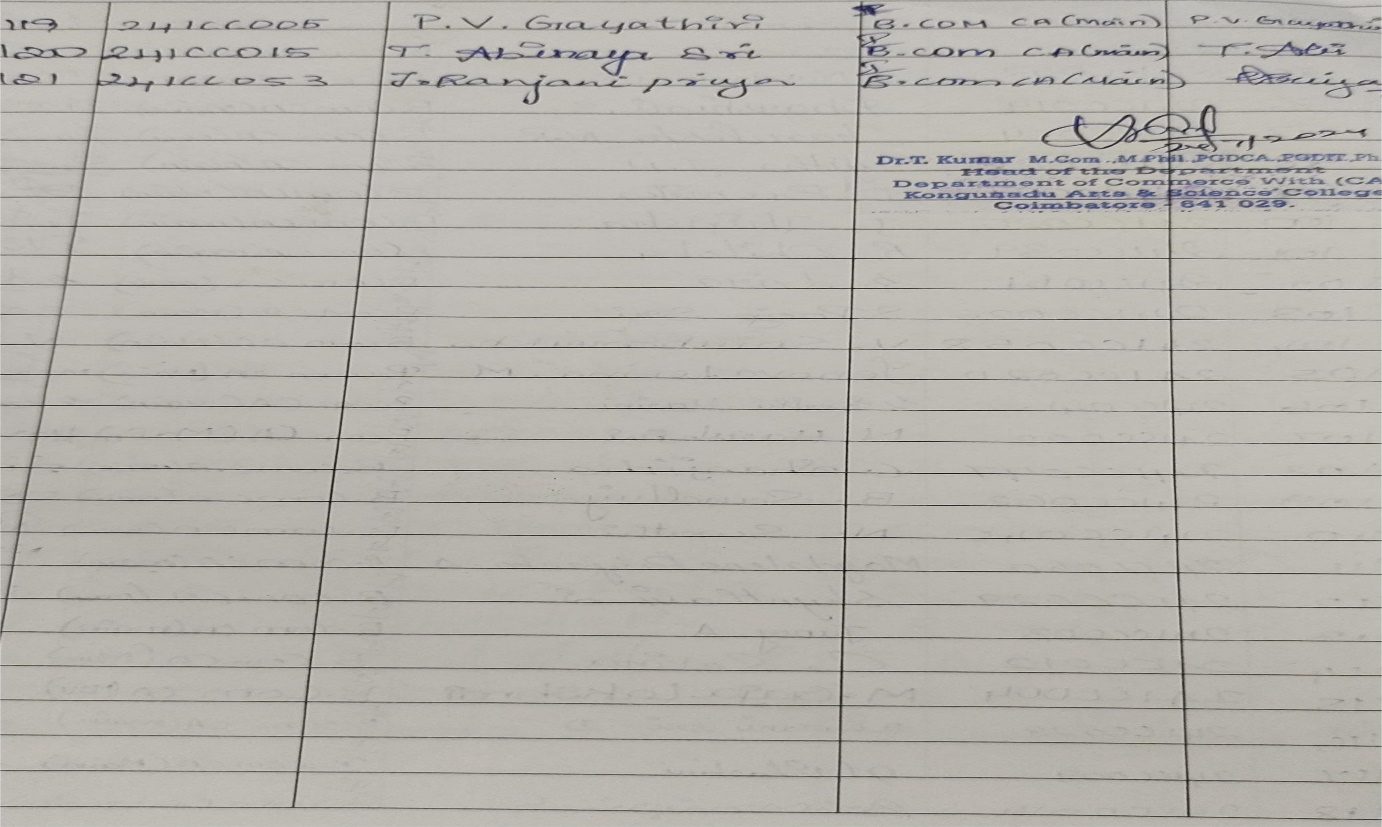 119 241CC005 P.V. Gayathiri B.COM CA(main) P.V. Gayathi
120 241CC015 T. Abinaya Sri B.com CA(main) T. Abi
121 241CC053 J.Ranjani priya B.com CA(Main)
2024
Dr.T. Kumar M.Com.,M.Phil.,PGDCA.,PGDIT.,Ph
Head of the Department
Department of Commerce With (CA
Kongunadu Arts & Science College
Coimbatore - 641 029.